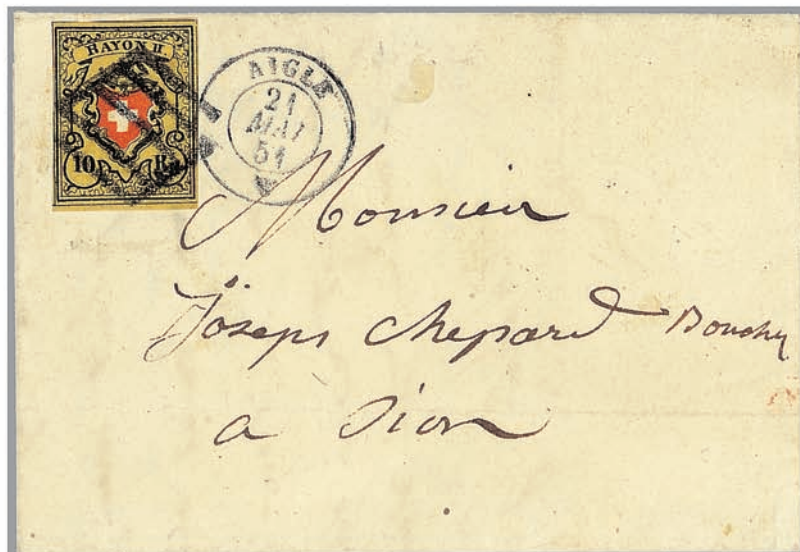 RAYON II
10 Rp.
AIGLE
21
MAI
51
Monsieur
Joseps Chepard
a Sion